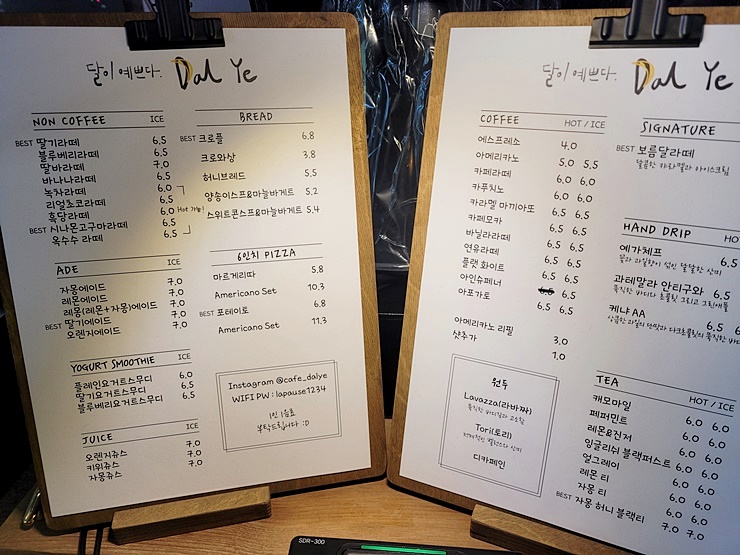 달이 예쁘다. Dal Ye
NON COFFEE ICE
BEST 딸기라떼 6.5
블루베리라떼 6.5
딸바라떼 7.0
바나나라떼 6.5
녹차라떼 6.0
리얼초코라떼 6.5
흑당라떼 6.0
BEST 시나몬고구마라떼 6.5
옥수수 라떼 6.5
Hot 가능!
ADE ICE
자몽에이드 7.0
레몬에이드 7.0
레몽(레몬+자몽)에이드 7.0
BEST 딸기에이드 7.0
오렌지에이드 7.0
YOGURT SMOOTHIE ICE
플레인요거트스무디 6.0
딸기요거트스무디 6.5
블루베리요거트스무디 6.5
JUICE ICE
오렌지쥬스 7.0
키위쥬스 7.0
자몽쥬스 7.0
BREAD
BEST 크로플 6.8
크로와상 3.8
허니브레드 5.5
양송이스프&마늘바게트 5.2
스위트콘스프&마늘바게트 5.4
6인치 PIZZA
마르게리따 5.8
Americano Set 10.3
BEST 포테이토 6.8
Americano Set 11.3
Instagram @cafe_dalye
WIFI PW : lapause1234
1인 1음료
부탁드립니다 :D
달이 예쁘다. Dal Ye
COFFEE HOT / ICE
에스프레소 4.0
아메리카노 5.0 5.5
카페라떼 6.0 6.0
카푸칫노 6.0 6.0
카라멜 마끼아또 6.5 6.5
카페모카 6.5 6.5
바닐라라떼 6.5 6.5
연유라떼 6.5 6.5
플랫 화이트 6.5 6.5
아인슈페너 6.5
아포가토 6.5 6.5
아메리카노 리필 3.0
샷추가 1.0
원두
Lavazza(라바짜)
묵직한 바디감과 고소함
Tori(토리)
디카페인
SIGNATURE
BEST 보름달라떼
달콤한 카라멜과 아이스크림
HAND DRIP
예가체프 6.5
꽃과 과일향이 섞인 달달한 산미
과테말라 안티구아 6.5
묵직한 바디와 초콜릿 그리고 그린애플
케냐 AA 6.5 6
상큼한 과일의 단맛과 다크초콜릿의 묵직한 바디
TEA HOT / ICE
캐모마일 6.0 6.0
페퍼민트 6.0 6.0
레몬&진저 6.0 6.0
잉글리쉬 블랙퍼스트 6.0 6.0
얼그레이 6.0 6.0
레몬 티 7.0 7.0
자몽 티 7.0 7.0
BEST 자몽 허니 블랙티 7.0 7.0
SDR-300